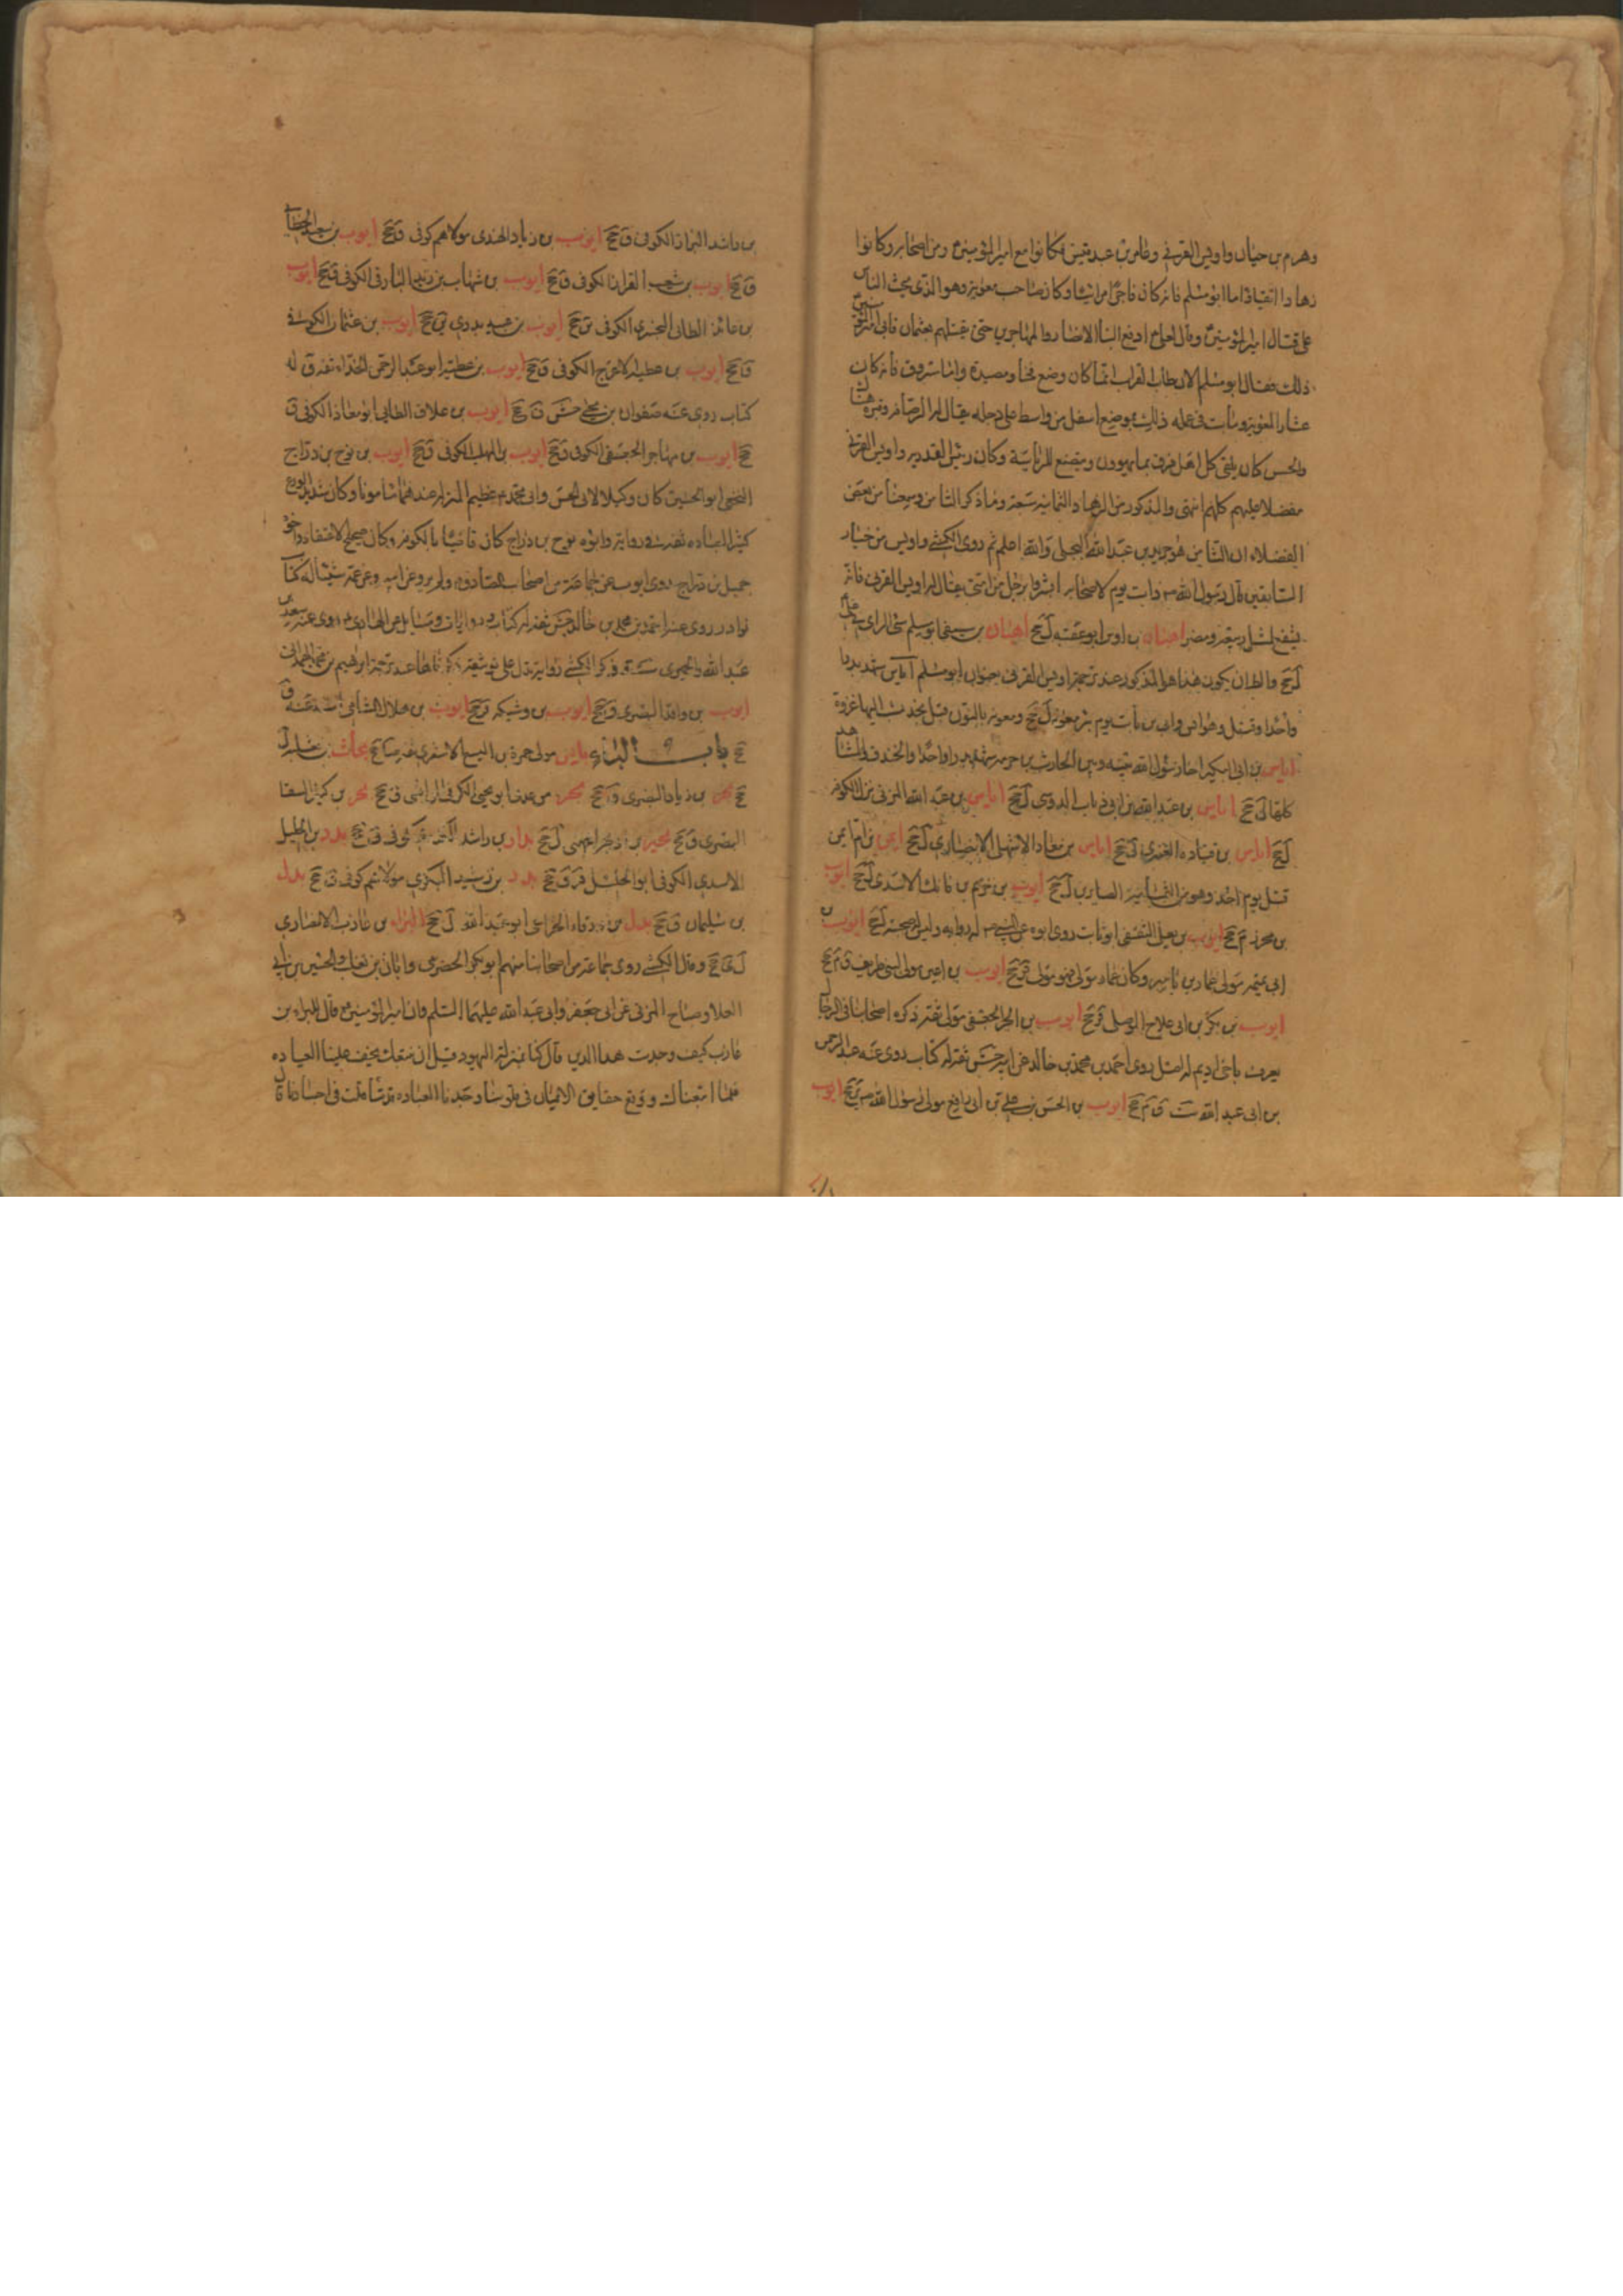 وهرم بن حيان واويس القرني وعامر بن عبد قيس فكانوا مع امير المؤمنين ومن اصحابه وكانوا
زهادا اتقياء واما ابو مسلم فانه كان فاجرا مرائيا وكان صاحب معوية وهو الذي يحث الناس
على قتال امير المؤمنين وقال لعلي ع ادفع الينا الانصار والمهاجرين حتى نقتلهم بعثمان فابى امير المؤمنين
ذلك فقال ابو مسلم الان طاب الضراب انما كان وضع فخا ومصيدة واما مسروق فانه كان
عشارا لمعوية ومات في عمله ذلك بموضع اسفل من واسط على دجله يقال له الرصافة وقبره هناك
والحسن كان يلقى كل اهل فرقة بما يهوون ويتصنع للرئاسة وكان رئيس القدرية واويس القرني
مفضلا عليهم كلهم انتهى والمذكور من الزهاد الثمانية سبعة وما ذكر الثامن وسمعنا من بعض
الفضلاء ان الثامن هو جرير بن عبد الله البجلي والله اعلم ثم روى الكشي واويس من خيار
التابعين قال رسول الله ص ذات يوم لاصحابه ابشروا برجل من امتي يقال له اويس القرني فانه
يشفع لمثل ربيعة ومضر اهبان بن اوس ابو عقبه ل جخ اهبان بن صيفي ابو مسلم سيئ الراي في علي
ل جخ والظان يكون هذا هو المذكور عند ترجمة اويس القرني بعنوان ابو مسلم اياس شهد بدرا
واحدا وقتل وهو انس وابي بن ثابت يوم بئر معونة ل جخ
اياس بن ابي البكير اخا رسول الله بينه وبين الحارث بن خزمة شهد بدرا واحدا والخندق والمشاهد
كلها ل جخ اياس بن عبد الله بن ابي ذباب الدوسي ل جخ اياس بن عبد الله المزني نزل الكوفة
ل جخ اياس بن قتاده العنبري ل جخ اياس بن معاذ الاشهلي الانصاري ل جخ ايمن بن ام ايمن
قتل يوم احد وهو من الثمانية الصابرين ل جخ ايوب بن خريم بن فاتك الاسدي ل جخ ايوب
بن محرز جخ ايوب بن يعلى الثقفي ابو ثابت روى ابوه عن النبي ص له رواية وليس له صحبة ل جخ ايوب بن
ابي عتيمة مولى عمار بن ياسر وكان عمار مولى فهو مولى جخ ايوب بن اعين مولى بني طريف ق م جخ
ايوب بن بكر بن ابي علاج الموصلي قر جخ ايوب بن الحر الجعفي مولى ثقة ذكره اصحابنا في الرجال
يعرف باخي اديم له اصل روى احمد بن محمد بن خالد عن ابيه جش ثقة له كتاب روى عنه عبد الرحمن
بن ابي عبد الله ست ق م جخ ايوب بن الحسن بن علي بن ابي رافع مولى رسول الله ص جخ ايوب
بن راشد البزاز الكوفي ق جخ ايوب بن زياد الهندي مولاهم كوفي ق جخ ايوب بن سعيد الخطابي
ق جخ ايوب بن شعيب القزاز الكوفي ق جخ ايوب بن شهاب بن زيد البارقي الكوفي ق جخ ايوب
بن عائذ الطائي البختري الكوفي ق جخ ايوب بن عبيد بدري جخ ايوب بن عثمان الكوفي
ق جخ ايوب بن عطية الاعرج الكوفي ق جخ ايوب بن عطية ابو عبد الرحمن الحذاء ثقة ق له
كتاب روى عنه صفوان بن يحيى جش ق جخ ايوب بن علاق الطائي ابو معاذ الكوفي ق
جخ ايوب بن مهاجر الجعفي الكوفي ق جخ ايوب بن المهلب الكوفي ق جخ ايوب بن نوح بن دراج
النخعي ابو الحسين كان وكيلا لابي الحسن وابي محمد ع عظيم المنزلة عندهما مامونا وكان شديد الورع
كثير العباده ثقة في رواياته وابوه نوح بن دراج كان قاضيا بالكوفه وكان صحيح الاعتقاد واخوه
جميل بن دراج روى ايوب عن جماعة من اصحاب الصادق ع ولم يرو عن ابيه وعن عمه شيئا له كتاب
نوادر روى عنه احمد بن محمد بن خالد جش ثقة له كتاب وروايات ومسايل عن الهادي ع روى عنه سعد بن
عبد الله والحميري ست ذكر الكشي رواية تدل على توثيقه ذكرناها عند ترجمة ابرهيم بن محمد الهمداني
ايوب بن واقد البصري ق جخ ايوب بن وشيكه قر جخ ايوب بن هلال الشامي عنه ق
جخ باب الباء بائس مولى حمزة بن اليسع الاشعري ثقة ضا جخ بجاد بن
جخ بحر بن زياد البصري ق جخ بحر بن عدي ابو يحيى الكوفي الرافعي ق جخ بحر بن كنيز السقا
البصري ق جخ بحير بن اوس ل جخ بدار بن راشد كوفي ق جخ بدر بن الخليل
الاسدي الكوفي ابو الخليل قر ق جخ بدر بن رشيد البكري مولاهم كوفي ق جخ بدل
بن سليمان ق جخ بديل بن ورقاء الخزاعي ابو عبد الله ل جخ البراء بن عازب الانصاري
ل ى جخ وقال الكشي روى جماعة من اصحابنا منهم ابو بكر الحضرمي وابان بن تغلب والحسين بن ابي
العلا وصباح المزني عن ابي جعفر وابي عبد الله عليهما السلم ان امير المؤمنين ع قال للبراء بن
عازب كيف وجدت هذا الدين قال كنا بمنزلة اليهود قبل ان نتبعك تخف علينا العباده
فلما اتبعناك ووقع حقايق الايمان في قلوبنا وجدنا العباده قد تثاقلت في اجسادنا قال